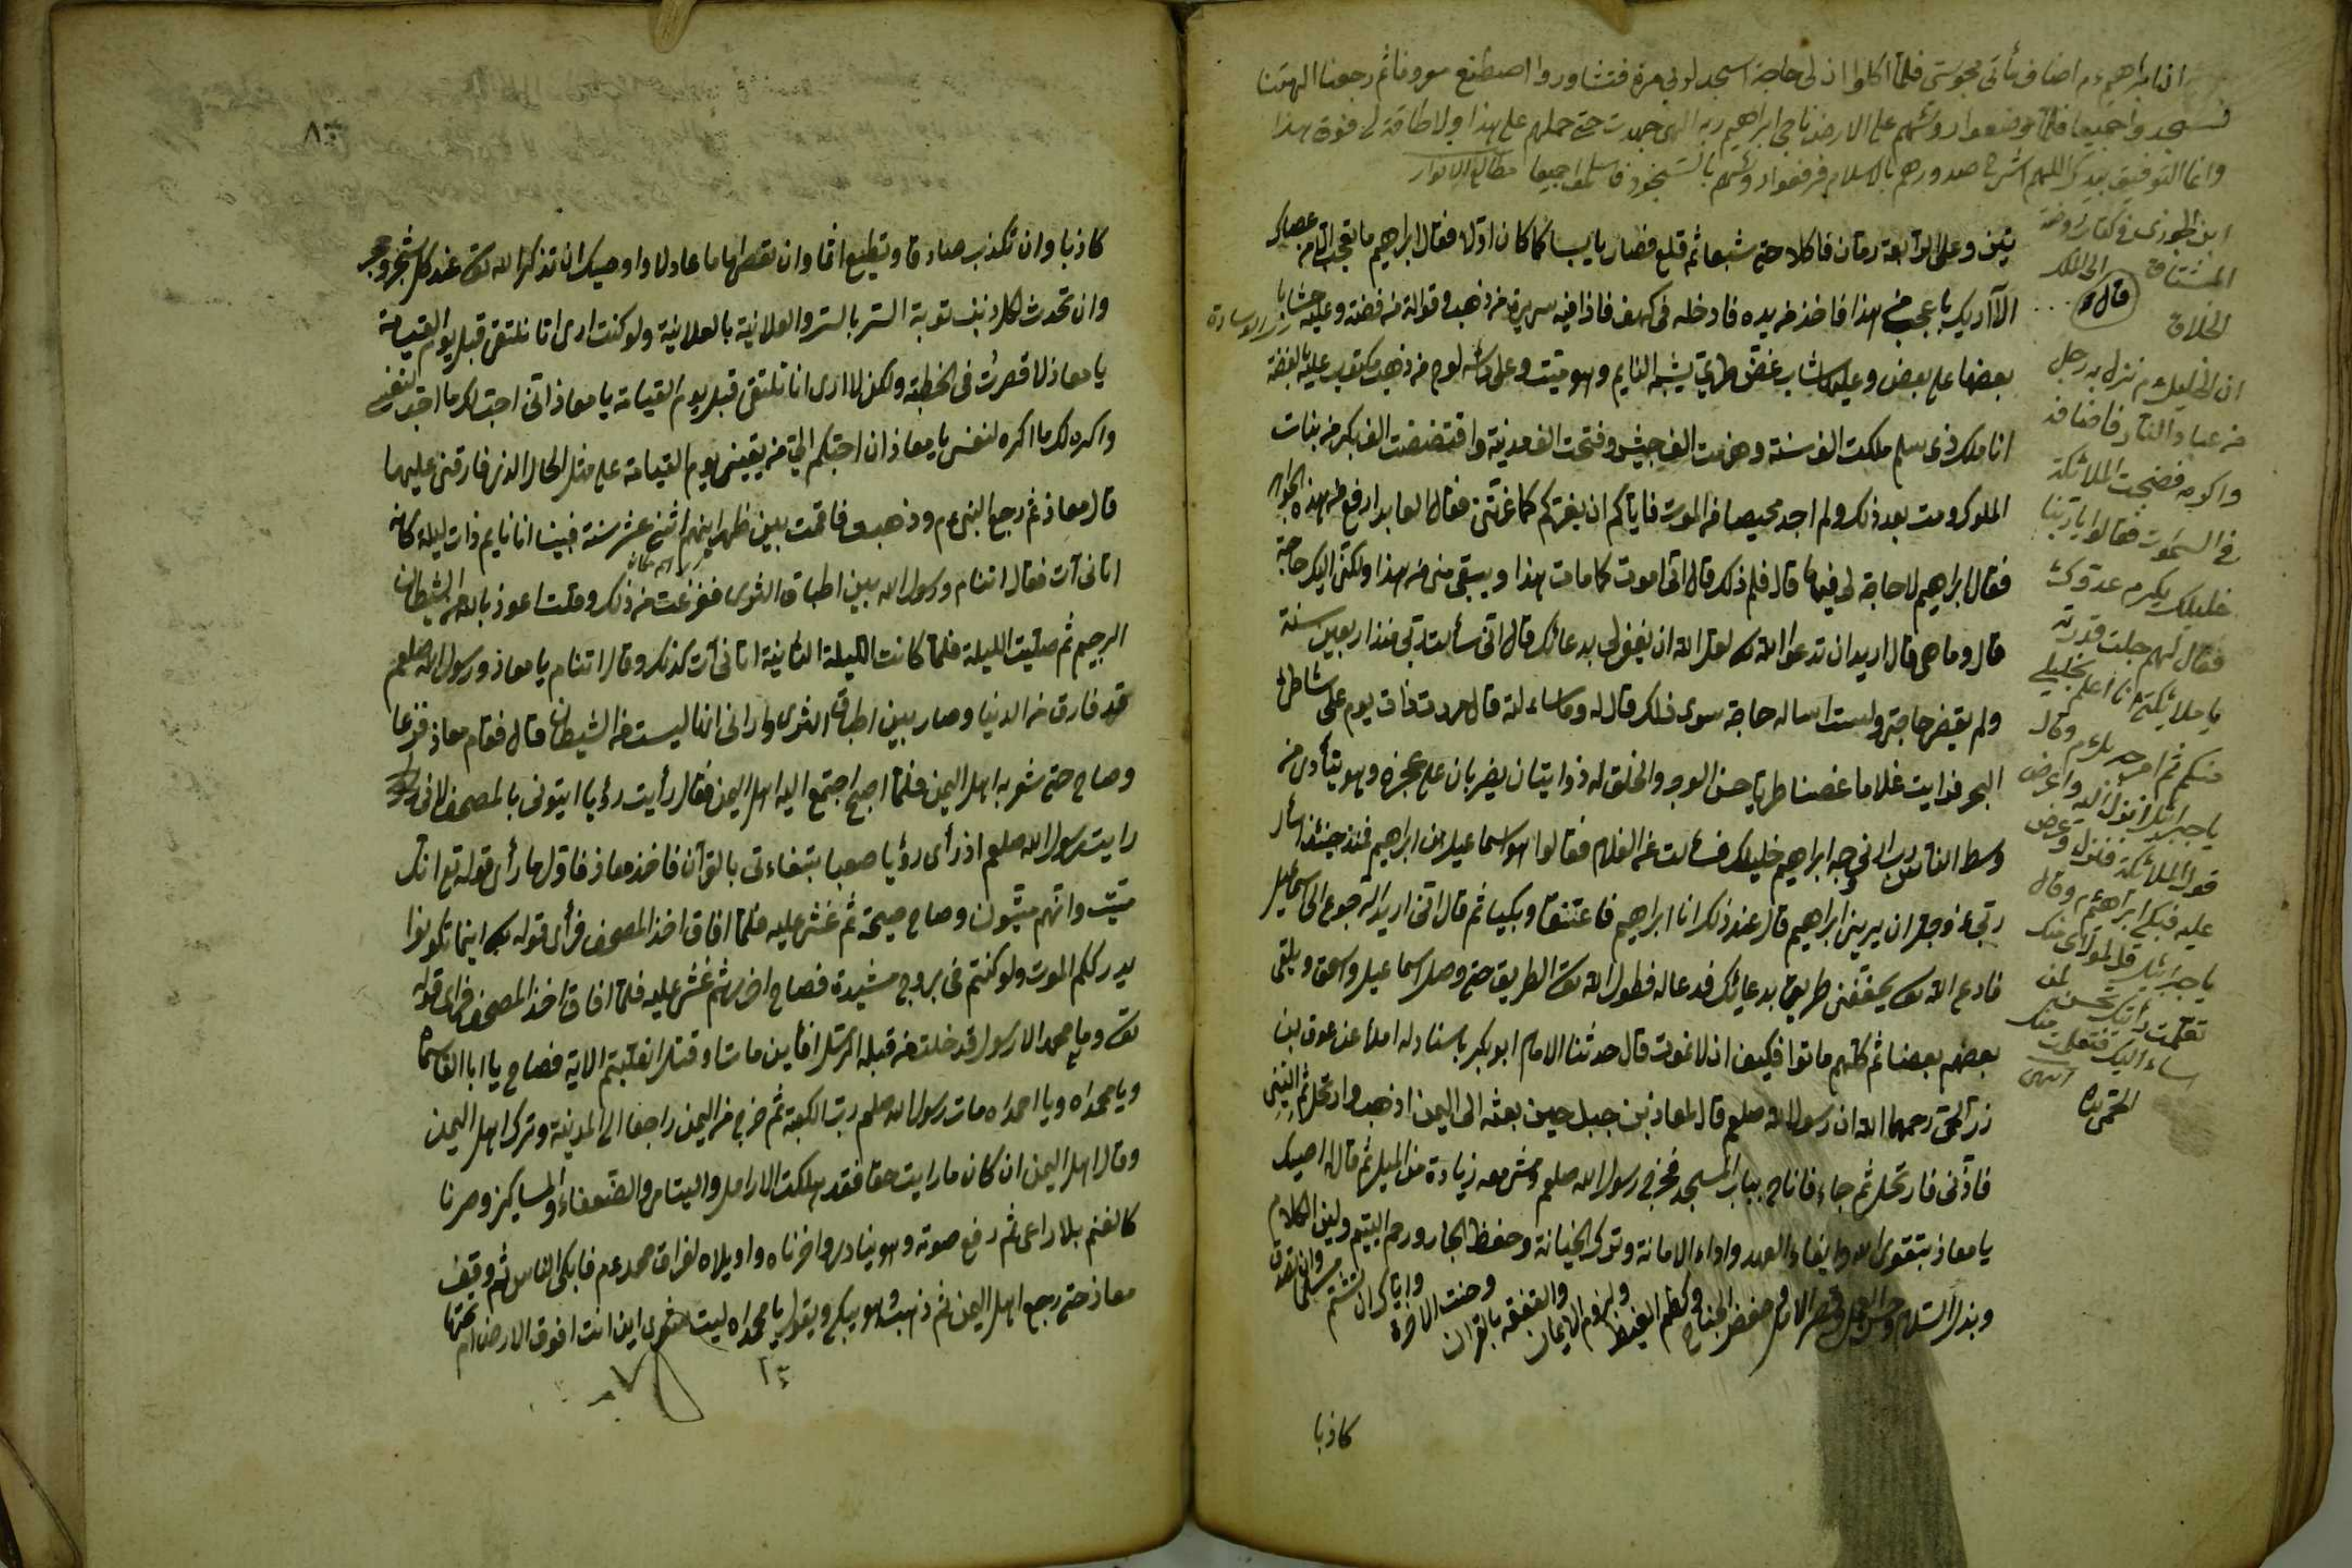 ان ابراهيم عم اضاف مأتى مجوسى فلما اكلوا ان لى حاجة اسجد لربى مرة فتشاوروا اصطنع معروفا ثم رجعنا الهتنا
فسجدوا جميعا فلما وضعوا رؤسهم على الارض ناجى ابراهيم ربه الهى جهدت حتى حملهم على هذا ولا طاقة لى فوق هذا
وانما التوفيق بيدك اللهم اشرح صدورهم بالاسلام فرفعوا رؤسهم بالسجود فاسلموا جميعا مطالع الانوار
ابن الجوزى فى كتاب روضة
المشتاق الى الملك
الخلاق
قال
ان الخليل عم نزل به رجل
من عباد النار فاضافه
واكرمه فضجت الملائكة
فى السموات فقالوا يا ربنا
خليلك يكرم عدوك
فقال لهم جلت قدرته
يا ملائكتى انا اعلم بخليلى
منكم ثم امر جبريل عم وقال
يا جبرائيل انزل اليه واعرض
قول الملائكة فنزل وعرض
عليه فبكى ابراهيم وقال
يا جبرائيل قل لمولاى منك
تعلمت رأيتك تحسن لمن
اساء اليك فتعلمت منك
انتهى
تين وعلى الرابعة رمان فاكلا حتى شبعا ثم قلع فصار يابسا كما كان اولا فقال ابراهيم ما تعجب انت من عصاك
الا اريك باعجب من هذا فاخذ من يده فادخله فى كهف فاذا فيه سرير من ذهب وقوائمه من فضة وعليه حشايا
بعضها على بعض وعليها شاب غض طرى يشبه النايم وهو ميت وعلى رأسه لوح من ذهب مكتوب عليه بالفضة
انا ملك ذى سلم ملكت الف سنة وهزمت الف جيش وفتحت الف مدينة وافتضضت الف بكر من بنات
الملوك ومت بعد ذلك ولم اجد محيصا من الموت فاياكم ان يغرنكم كما غرتنى فقال العابد ارفع من هذه الجواهر
فقال ابراهيم لا حاجة لى فيها قال فلم ذلك قال انى اموت كما مات هذا ويبقى منى من هذا ولكن لى اليك حاجة
قال وما هى قال اريد ان تدعو الله تعالى لعل الله ان يغفر لى بدعائك قال انى سألت ربى منذ اربعين سنة
ولم يقض حاجتى ولست اساله حاجة سوى ذلك قال له وما سألته قال مررت ذات يوم على شاطئ
البحر فرايت غلاما غصنا طريا حسن الوجه والخلق له ذوابتان يضربان على عجزه وهو ينادى من
وسط الناس رب ارنى وجه ابراهيم خليلك فسألت عن الغلام فقالوا هو اسماعيل بن ابراهيم فمنذ حينئذ اسأل
ربى عز وجل ان يرينى ابراهيم قال عند ذلك انا ابراهيم فاعتنقا وبكيا ثم قال انى اريد الرجوع الى اسماعيل
فادع الله تعالى يخفف طريقى بدعائك فدعا له فطول الله تعالى الطريق حتى وصل اسماعيل واسحق ويلقى
بعضهم بعضا ثم كلهم ماتوا فكيف ان لا نموت قال حدثنا الامام ابو بكر باسناد له املاء عن عوف بن
زر رحمهما الله ان رسول الله صلعم قال لمعاذ بن جبل حين بعثه الى اليمن اذهب وارتحل ثم ائتنى
فآذنى فارتحل ثم جاء فاناخ بباب المسجد فخرج رسول الله صلعم ومشى معه زيادة من الميل ثم قال له اوصيك
يا معاذ بتقوى الله وايفاء العهد واداء الامانة وترك الخيانة وحفظ الجار ورحم اليتيم ولين الكلام
وبذل السلام وحسن العمل وقصر الامل وخفض الجناح وكظم الغيظ ولزوم الايمان والتفقه بالقران وحب الاخرة واياك ان تشتم مسلما وان تصدق
كاذبا
٨٣
كاذبا وان تكذب صادقا وتطيع اثما وان تعصى اماما عادلا واوصيك ان تذكر الله تعالى عند كل شجر وحجر
وان تحدث لكل ذنب توبة السر بالسر والعلانية بالعلانية ولو كنت ارى انا نلتقى قبل يوم القيمة
يا معاذ لاقصرت فى الخطبة ولكن لا ارى انا نلتقى قبل يوم القيامة يا معاذ انى احب لك ما احب لنفسى
واكره لك ما اكره لنفسى يا معاذ ان احبكم الى من يلقينى يوم القيامة على مثل الحال الذى فارقنى عليها
قال معاذ ثم رجع النبى عم وذهبت فاقمت بين ظهرانيهم اثنى عشر سنة فبينا انا نايم ذات ليلة كانه
اتانى آت فقال اتنام ورسول الله بين اطباق الثرى ففزعت من ذلك وقلت اعوذ بالله من الشيطان
الرجيم ثم صليت الليلة فلما كانت الليلة الثانية اتانى آت كذلك وقال اتنام يا معاذ ورسول الله صلعم
قد فارق من الدنيا وصار بين اطباق الثرى وارانى انها ليست من الشيطان قال فقام معاذ فزعا
وصاح حتى شعر به اهل اليمن فلما اصبح اجتمع اليه اهل اليمن فقال رأيت رؤيا ايتونى بالمصحف لانى
رايت رسول الله صلعم اذ رأى رؤيا صعبا يتفاءل بالقرآن فاخذ معاذ فاول ما رأى قوله تع انك
ميت وانهم ميتون وصاح صيحة ثم غشى عليه فلما افاق اخذ المصحف فرأى قوله تعالى اينما تكونوا
يدرككم الموت ولو كنتم فى بروج مشيدة فصاح اخرى ثم غشى عليه فلما افاق اخذ المصحف فرأى قوله
تعالى وما محمد الا رسول قد خلت من قبله الرسل افأين مات او قتل انقلبتم الاية فصاح يا ابا القاسماه
ويا محمداه ويا احمداه مات رسول الله صلعم ورب الكعبة ثم خرج من اليمن راجعا الى المدينة وترك اهل اليمن
وقال اهل اليمن ان كان ما رايت حقا فقد هلكت الارامل واليتامى والضعفاء والمساكين وصرنا
كالغنم بلا راعى ثم رفع صوته وهو ينادى واحزناه واويلاه لفراق محمد عم فابكى الناس ثم وقف
معاذ حتى رجع اهل اليمن ثم ذهب وهو يبكى ويقول يا محمداه ليت شعرى اين انت افوق الارض ام تحتها